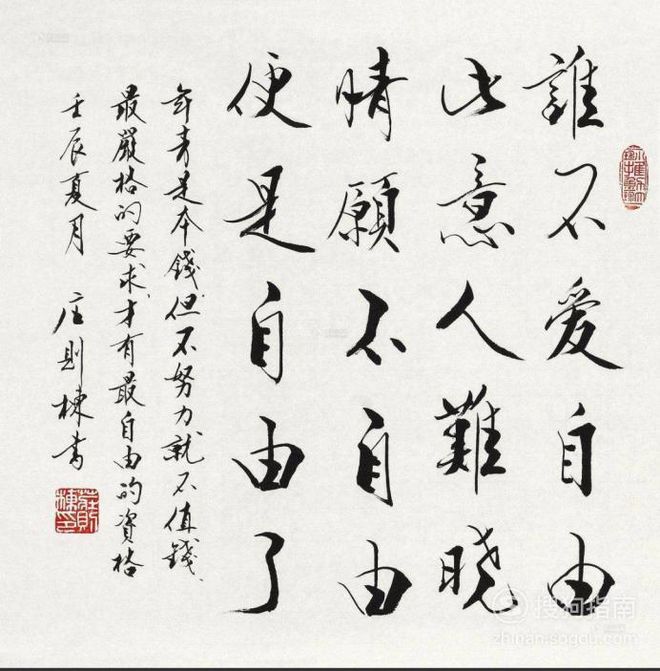 誰不爱自由
此意人難晓
情願不自由
便是自由了
年青是本錢但不努力就不值錢、
最嚴格的要求才有最自由的資格
壬辰夏月 庄則棟书
莊則棟印
搜狗指南
zhinan.sogou.com